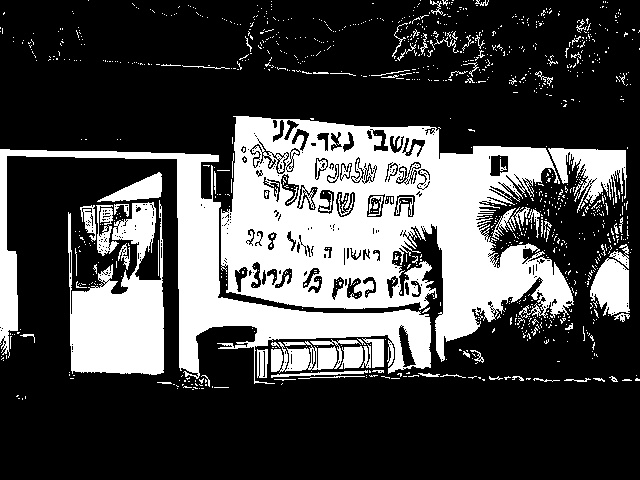 תושבי נצר-חזני
כולכם מוזמנים לערב:
"חיים שכאלה"
ביום ראשון ה אלול 22.8
כולם באים בלי תירוצים